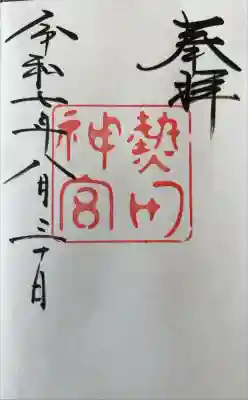 奉拝
熱田
神宮
令和七年八月三十日